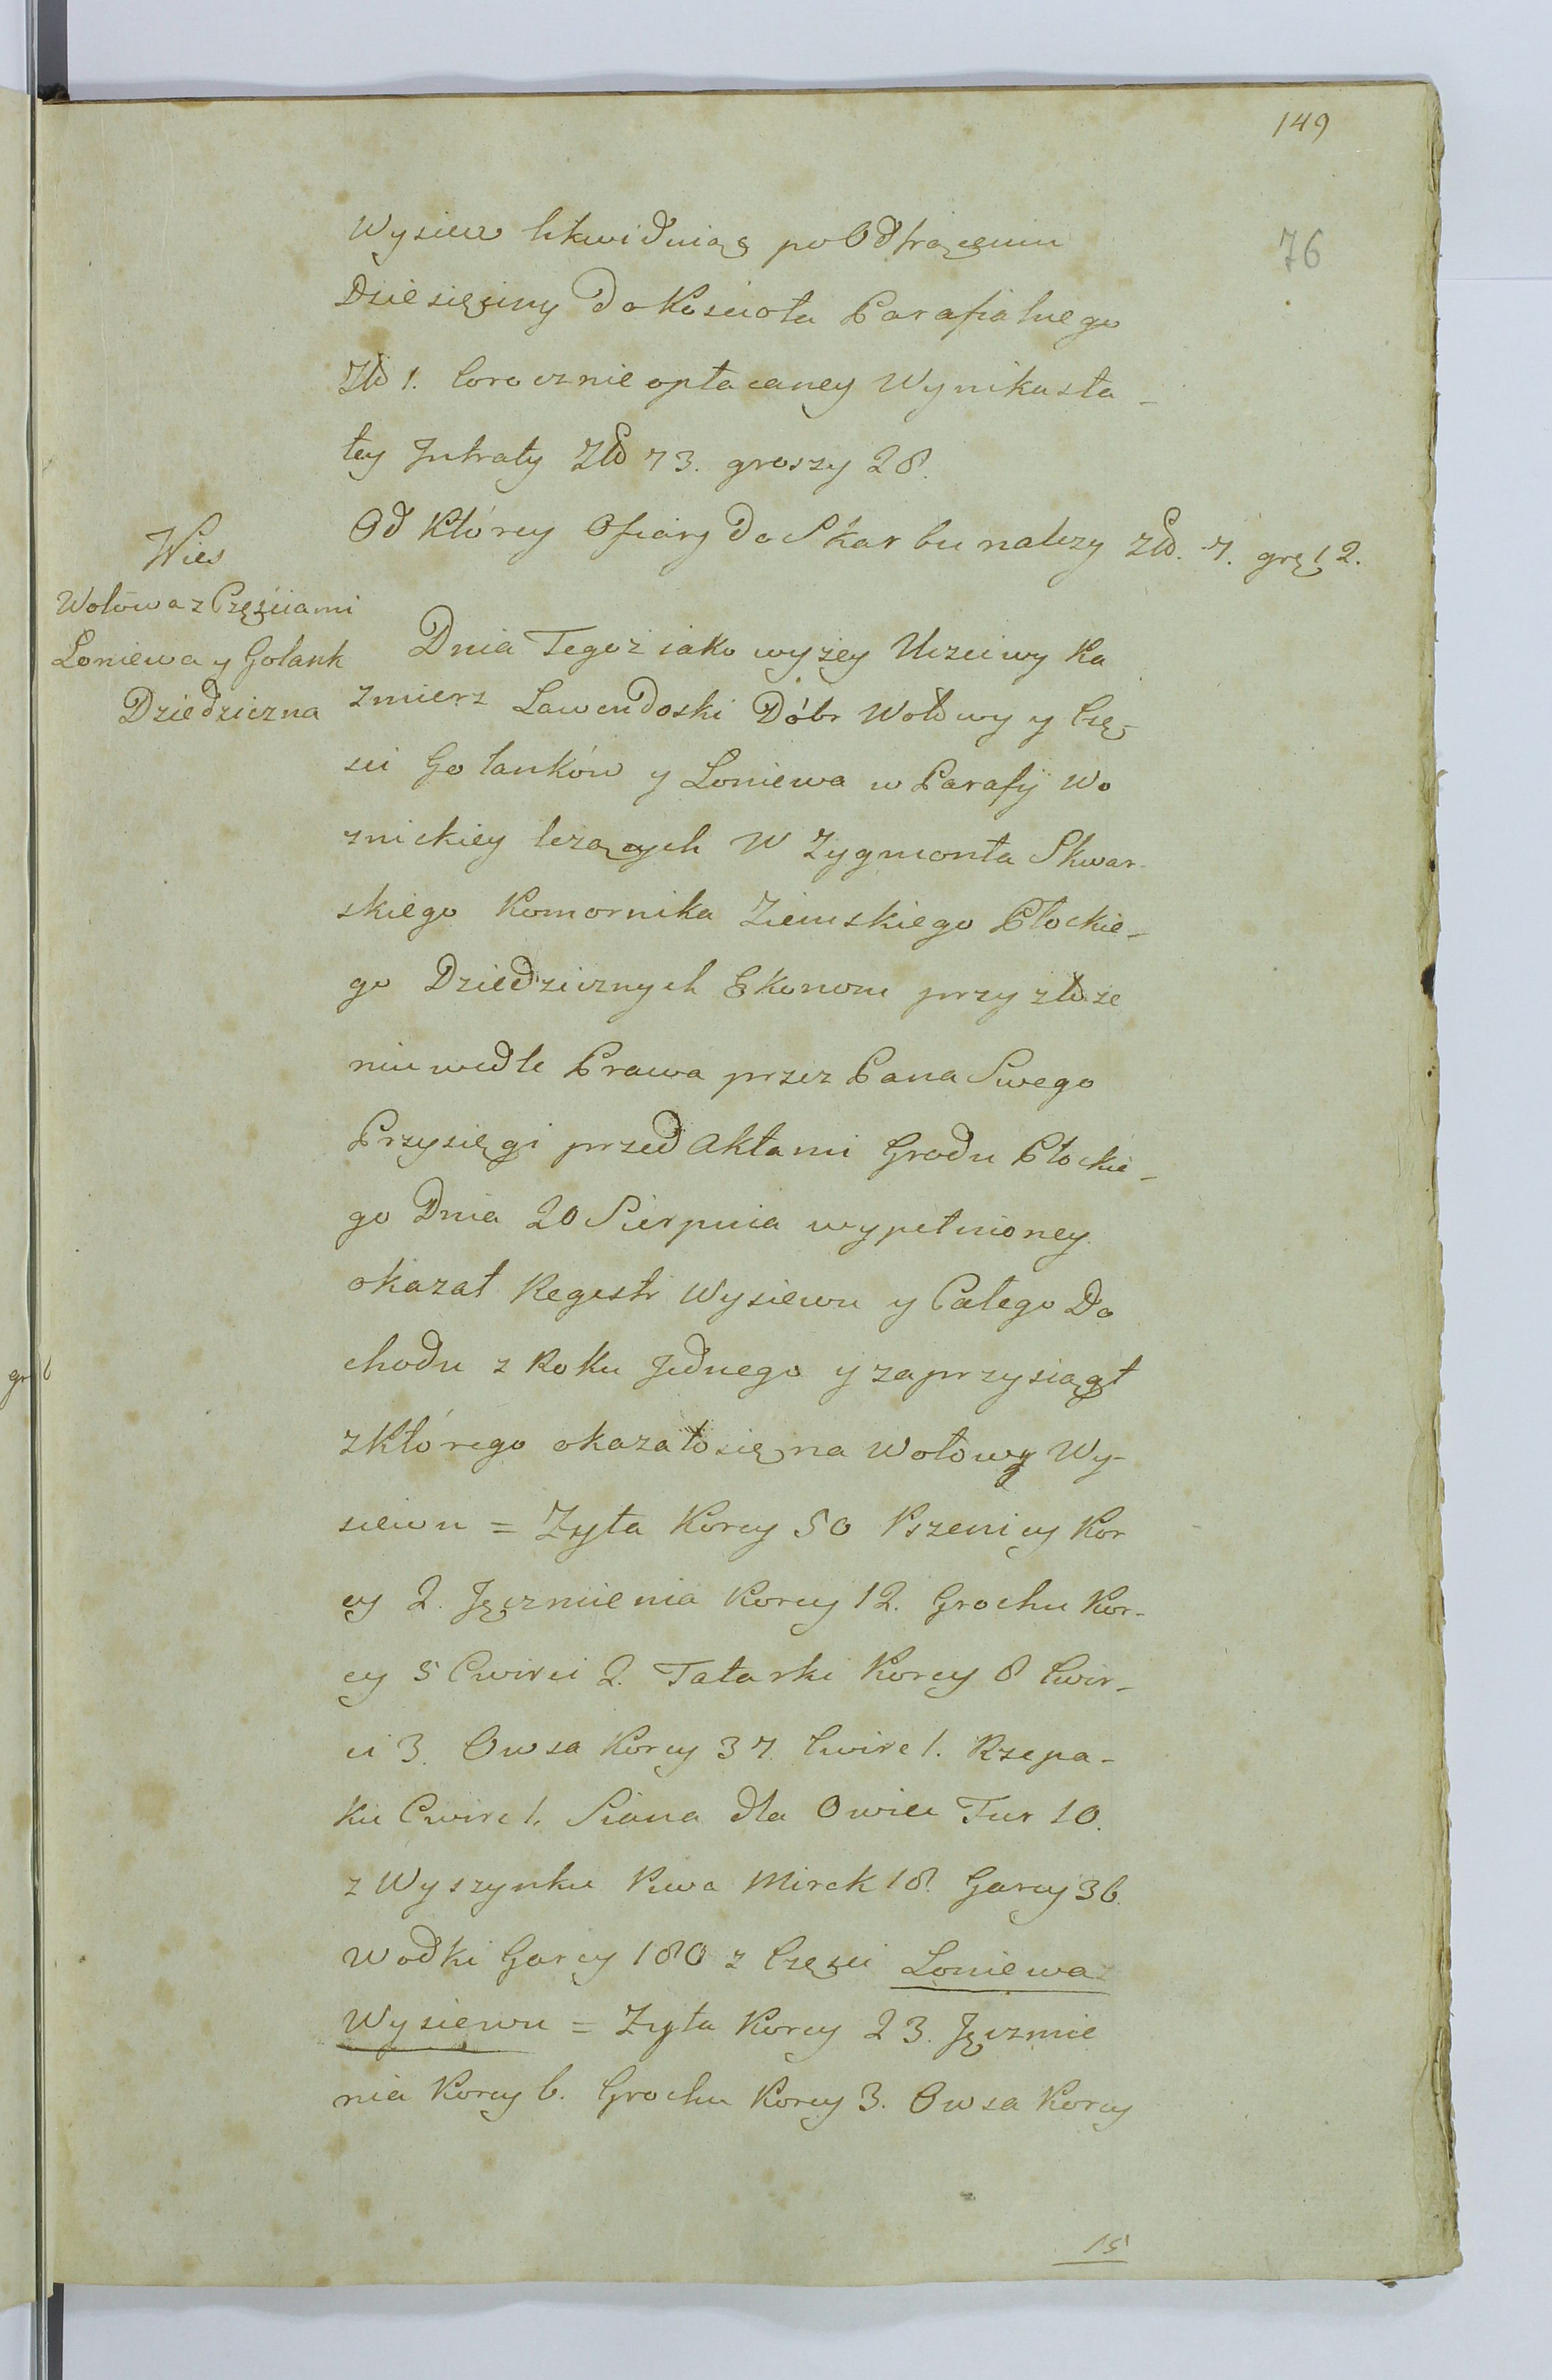 149
76
Wysiew likwiduiąę po Odtrąęeniu
Dziesięęiny do Kościoła Parafialnego
Zło 1. Corocznie opłacaney Wynika sta-
łey Jntraty Zło 73. groszy 28.
Od Którey Ofiary do Skarbu należy Zło. 7. grę 12.
Wies
Wołowa z Częsciami
Loniewa y Golank
Dziedziczna
Dnia Tegoż iako wyżey Uczciwy Ka
zmierz Lawendoski Dóbr Wołowy y Czę-
sci Golanków y Loniewa w Parafij Wo
znickiey leżących W Zygmonta Skwar-
skiego Komornika Ziemskiego Płockie-
go Dziedzicznych Ekonom przy złoże
niu wedle Prawa przez Pana Swego
Przysięgi przed Aktami Grodu Płockie-
go Dnia 20 Sierpnia wypełnioney.
okazał Regestr Wysiewu y Całego Do
chodu z Roku Jednego y zaprzysiągł
z Którego okazało się na Wołowy Wy-
siewu = Zyta Korcy 50 Pszenicy Kor
cy 2. Jęczmienia Korcy 12. Grochu Kor-
cy 5 Cwirci 2. Tatarki Korcy 8 Cwir-
ci 3. Owsa Korcy 37. Cwirc 1. Rzepa-
ku Cwirc 1. Siana dla Owiec Fur 10.
z Wyszynku Piwa Mirek 18. Garcy 36.
Wodki Garcy 180 z Częsci Loniewa
Wysiewu = Zyta Korcy 23. Jęczmie
nia Korcy 6. Grochu Korcy 3. Owsa Korcy
15